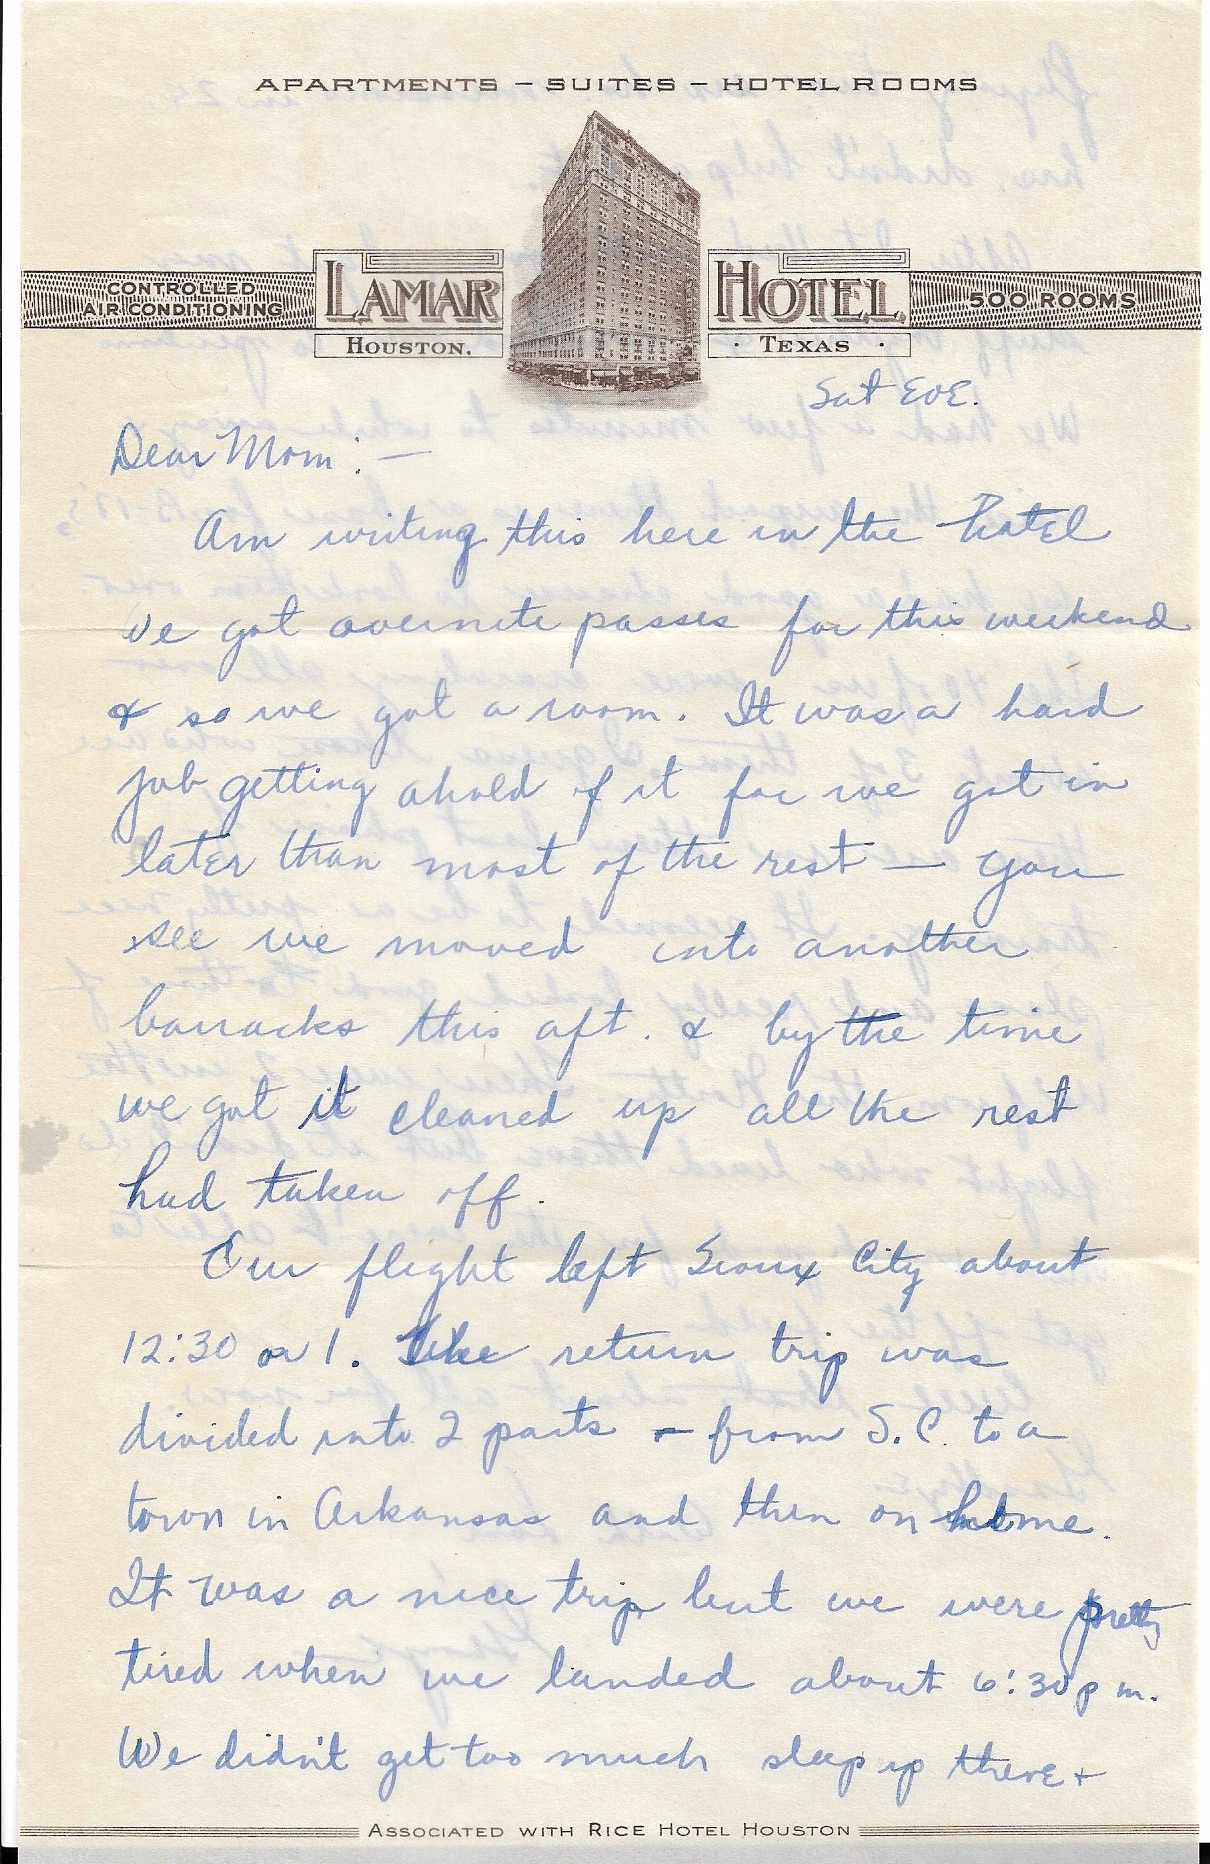 APARTMENTS – SUITES – HOTEL ROOMS
CONTROLLED
AIR CONDITIONING
LAMAR
HOTEL
500 ROOMS
HOUSTON.
· TEXAS ·
Sat EvE.
Dear Mom: —
Am writing this here in the hotel
We got overnite passes for this weekend
& so we got a room. It was a hard
job getting ahold of it for we got in
later than most of the rest — you
see we moved into another
barracks this aft. & by the time
we got it cleaned up all the rest
had taken off.
Our flight left Sioux City about
12:30 or 1. The return trip was
divided into 2 parts – from S.C. to a
town in Arkansas and then on home.
It was a nice trip but we were pretty
tired when we landed about 6:30 p m.
We didn't get too much sleep up there +
ASSOCIATED WITH RICE HOTEL HOUSTON